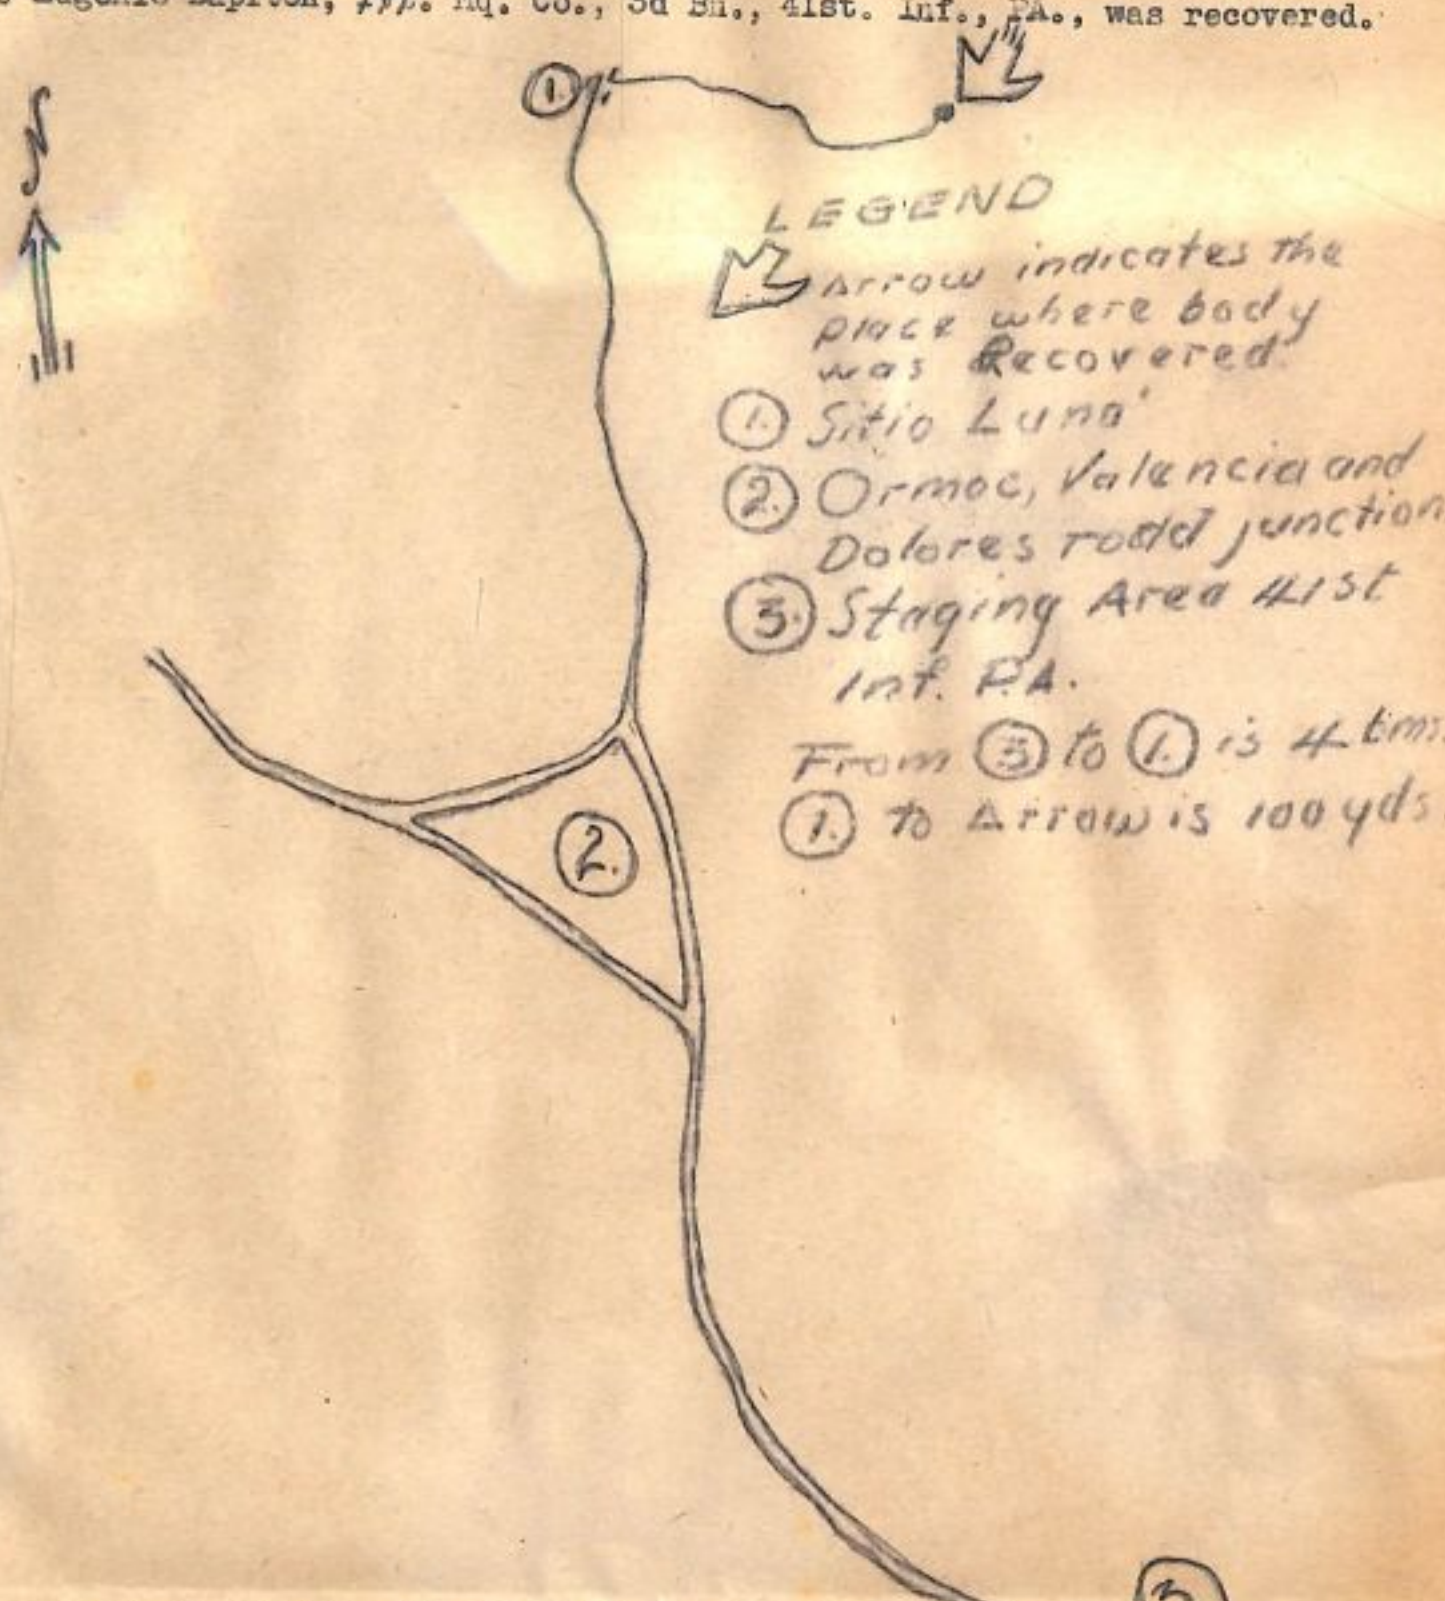 Eugenio Hq. Co., 3d Bn., 41st. Inf., PA., was recovered.
1.
N
LEGEND
Arrow indicates the
place where body
was Recovered.
1. Sitio Luna
2. Ormoc, Valencia and
Dolores road junction
3. Staging Area 41st
Inf. P.A.
From 3 to 1. is 4
1. to Arrow is 100 yds
2.
3